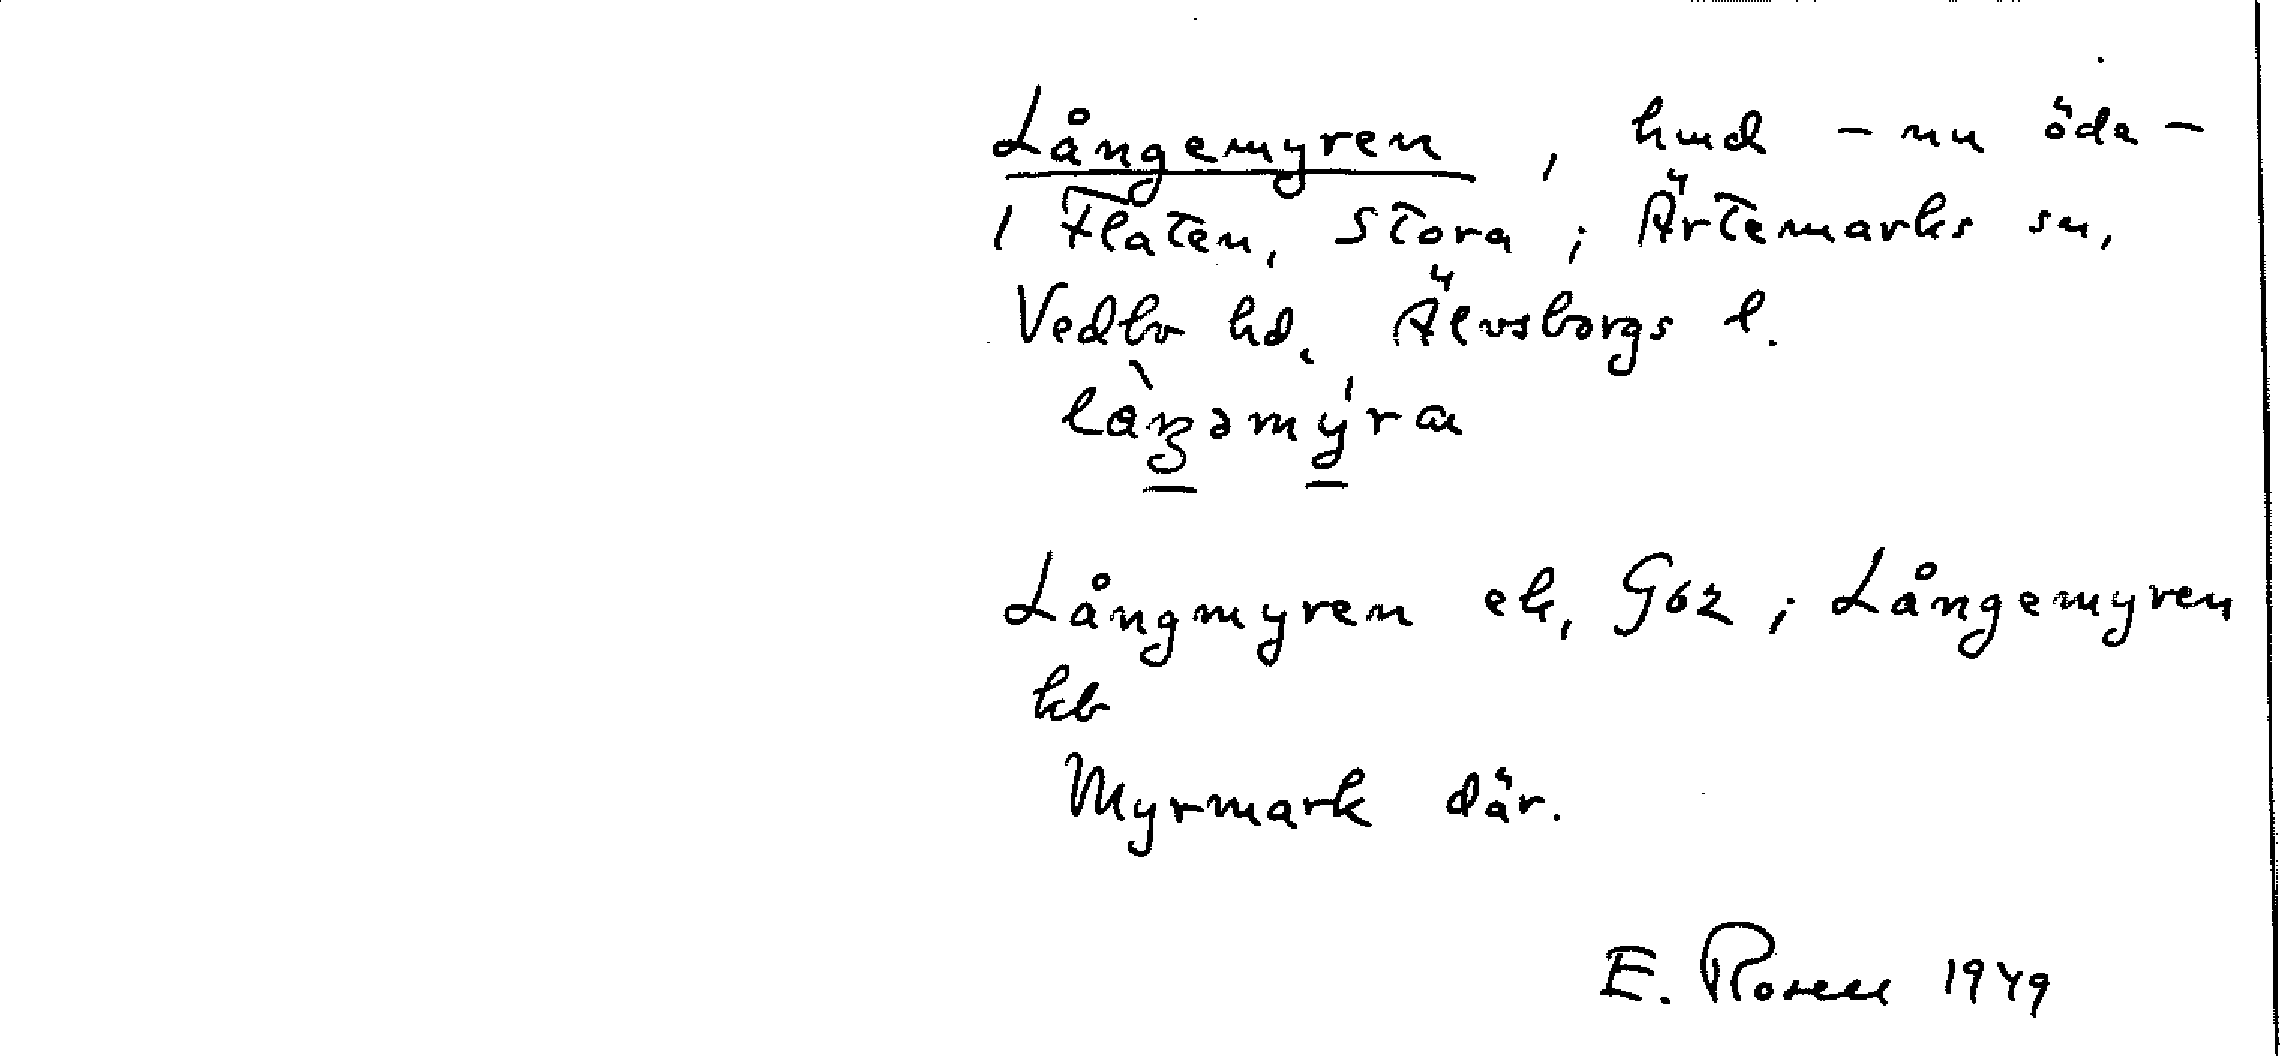 Långemyren, hmd – nu öda –
i Flaten, Stora; Ärtemarks sn,
Vedbo hd, Älvsborgs l.
Långmyren ek, G62; Långemyren
kb
Myrmark där.
E. Rosell 1949